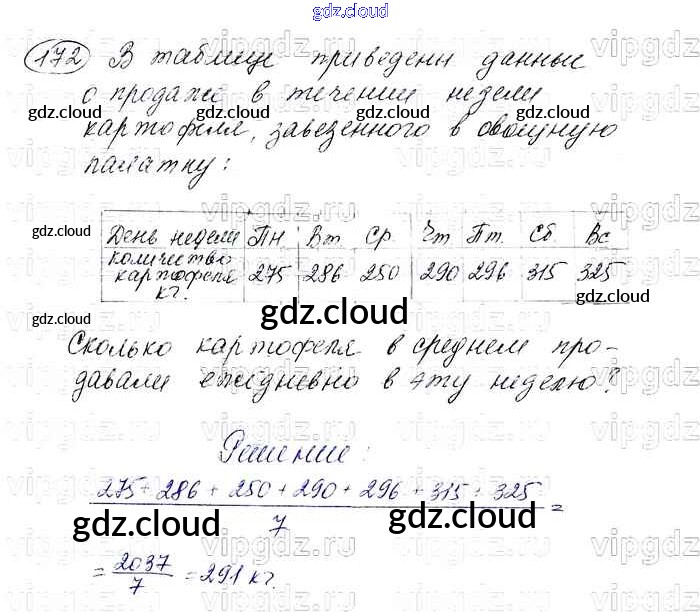 gdz.cloud
172 В таблице приведены данные
о продаже в течении недели
картофеля, завезенного в овощную
палатку:
День недели Пн. Вт. Ср. Чт. Пт. Сб. Вс
количество картофеля кг. 275 286 250 290 296 315 325
gdz.cloud
Сколько картофеля в среднем про-
давали ежедневно в эту неделю?
Решение:
275 + 286 + 250 + 290 + 296 + 315 + 325 =
7
= 2037/7 = 291 кг.
gdz.cloud gdz.cloud gdz.cloud
vipgdz.ru